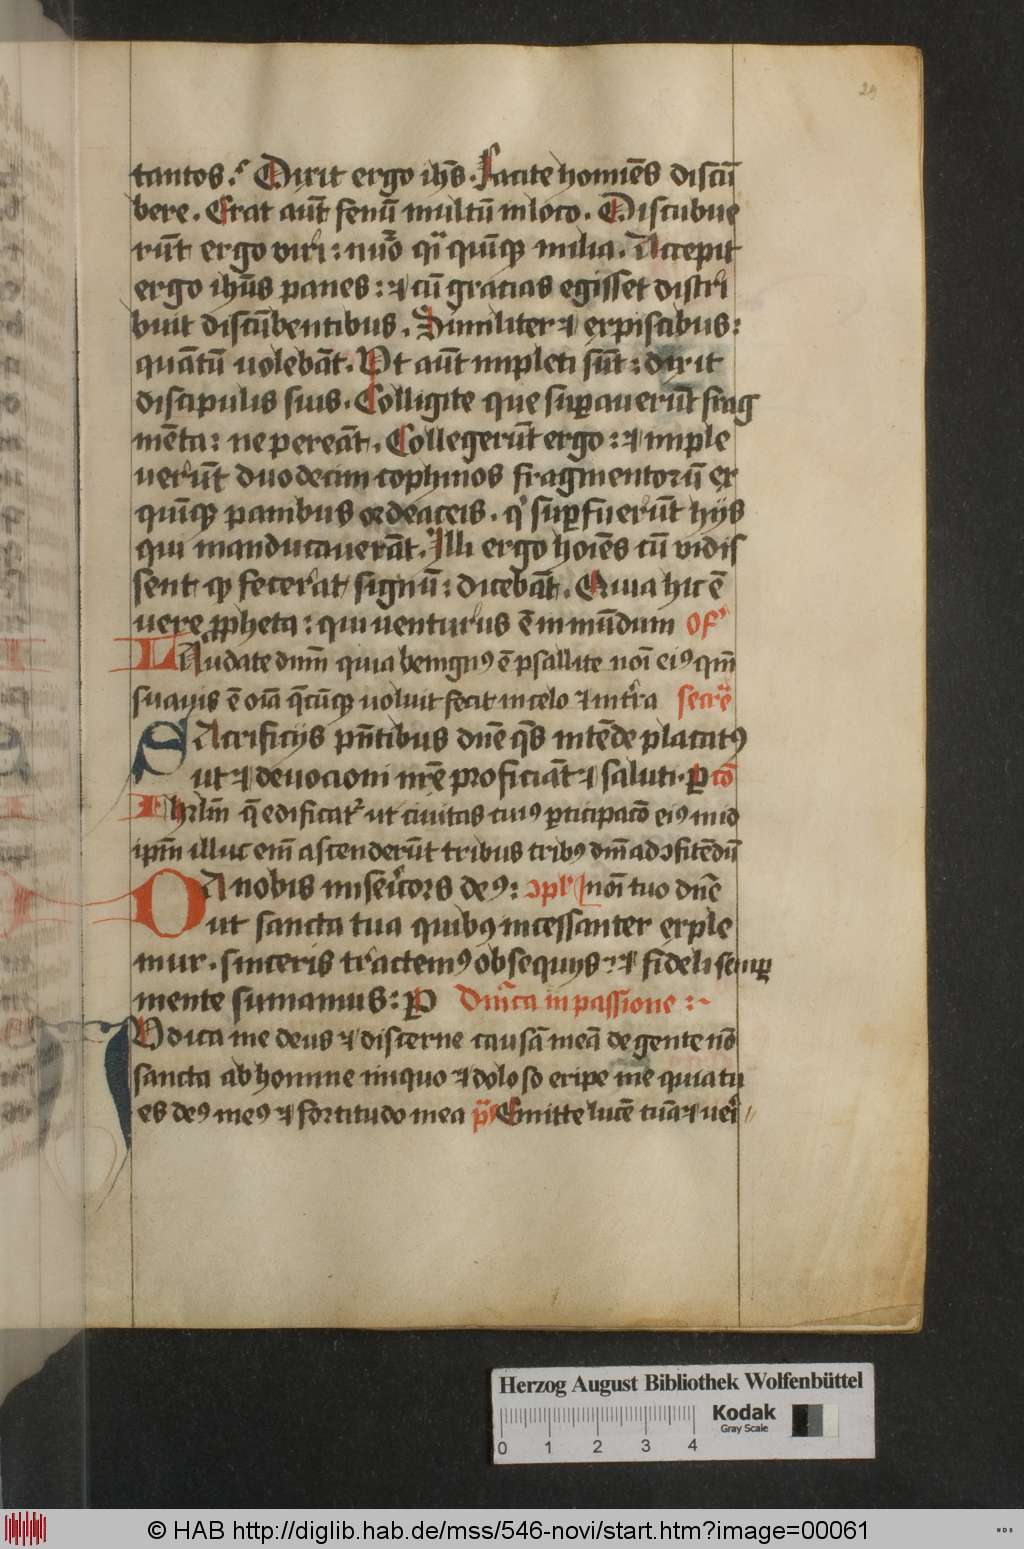 29
tantos. Dixit ergo ihs̄. Facite homīes discū
bere. Erat aūt fenū multū in loco. Discubue
rūt ergo viri: nūo qͣi quīqꝫ milia. Accepit
ergo ihūs panes: ⁊ cū gracias egisset distri
buit discūbentibus. Similiter ⁊ ex piscibus:
quātū uolebāt. Vt aūt impleti sūt: dixit
discipulis suis. Colligite que suꝑauerūt frag
mēta: ne pereāt. Collegerūt ergo: ⁊ imple
uerūt duodecim cophinos fragmentorū ex
quīqꝫ panibus ordeaceis. qͥ suꝑfuerūt hijs
qui manducauerāt. Illi ergo hoīes cū vidis
sent ꝙ fecerat signū: dicebāt. Quia hic ē
vere ꝓpheta: qui venturus ē in mūdum of
LAudate dnm̄ quia benignꝰ ē psallite noī eiꝰ qm̄
suauis ē oīa q̄cūqꝫ uoluit fecit in celo ⁊ in tr̄a secrē
SAcrificijs pn̄tibus dn̄e qs̄ intēde placatꝰ
ut ⁊ deuocioni nr̄e proficiāt ⁊ saluti. ꝑ cō
Ihrlm̄ q̄ edificatʳ ut ciuitas cuiꝰ ꝑticipacō eiꝰ in id
ipm̄ illuc em̄ ascenderūt tribus tribꝰ dnī ad ꝯfitēdū
DA nobis misericors deꝰ: ꝯpl' noī tuo dn̄e
ut sancta tua quibꝰ incessanter exple
mur. sinceris tractemꝰ obsequijs: ⁊ fideli semꝑ
mente sumamus: P Dn̄ica in passione :~
IVdica me deus ⁊ discerne causā meā de gente nō
sancta ab homine iniquo ⁊ doloso eripe me quia tu
es deꝰ meꝰ ⁊ fortitudo mea p̄s Emitte lucē tuā ⁊ ueri
Herzog August Bibliothek Wolfenbüttel
Kodak
Gray Scale
0 1 2 3 4
© HAB http://diglib.hab.de/mss/546-novi/start.htm?image=00061